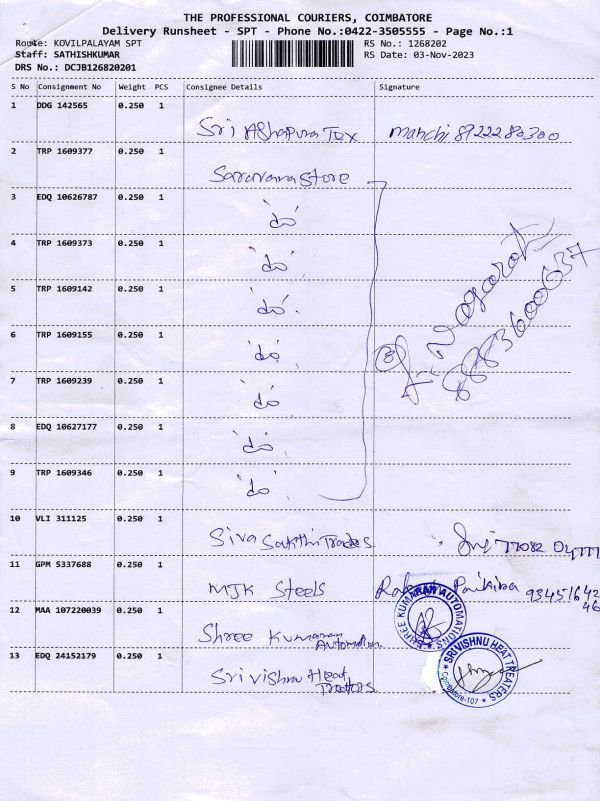 THE PROFESSIONAL COURIERS, COIMBATORE
Delivery Runsheet - SPT - Phone No.:0422-3505555 - Page No.:1
Route: KOVILPALAYAM SPT RS No.: 1268202
Staff: SATHISHKUMAR RS Date: 03-Nov-2023
DRS No.: DCJB126820201
S No Consignment No Weight PCS Consignee Details Signature
1 DDG 142565 0.250 1
Sri Ashapura Tex manchi 8922280300
2 TRP 1609377 0.250 1
Saravana Store
3 EDQ 10626787 0.250 1
"do"
4 TRP 1609373 0.250 1
"do"
5 TRP 1609142 0.250 1
"do"
6 TRP 1609155 0.250 1
"do"
7 TRP 1609239 0.250 1
"do"
8 EDQ 10627177 0.250 1
"do"
9 TRP 1609346 0.250 1
"do"
8883600637
10 VLI 311125 0.250 1
Siva Sakthi Trades 77082 04777
11 GPM 5337688 0.250 1
MJK Steels
12 MAA 107220039 0.250 1
Shree Kumaran
Automation
SHREE KUMARAN AUTOMATIONS
13 EDQ 24152179 0.250 1
Sri vishnu Heat
Treators
SRI VISHNU HEAT TREATERS
Coimbatore-107